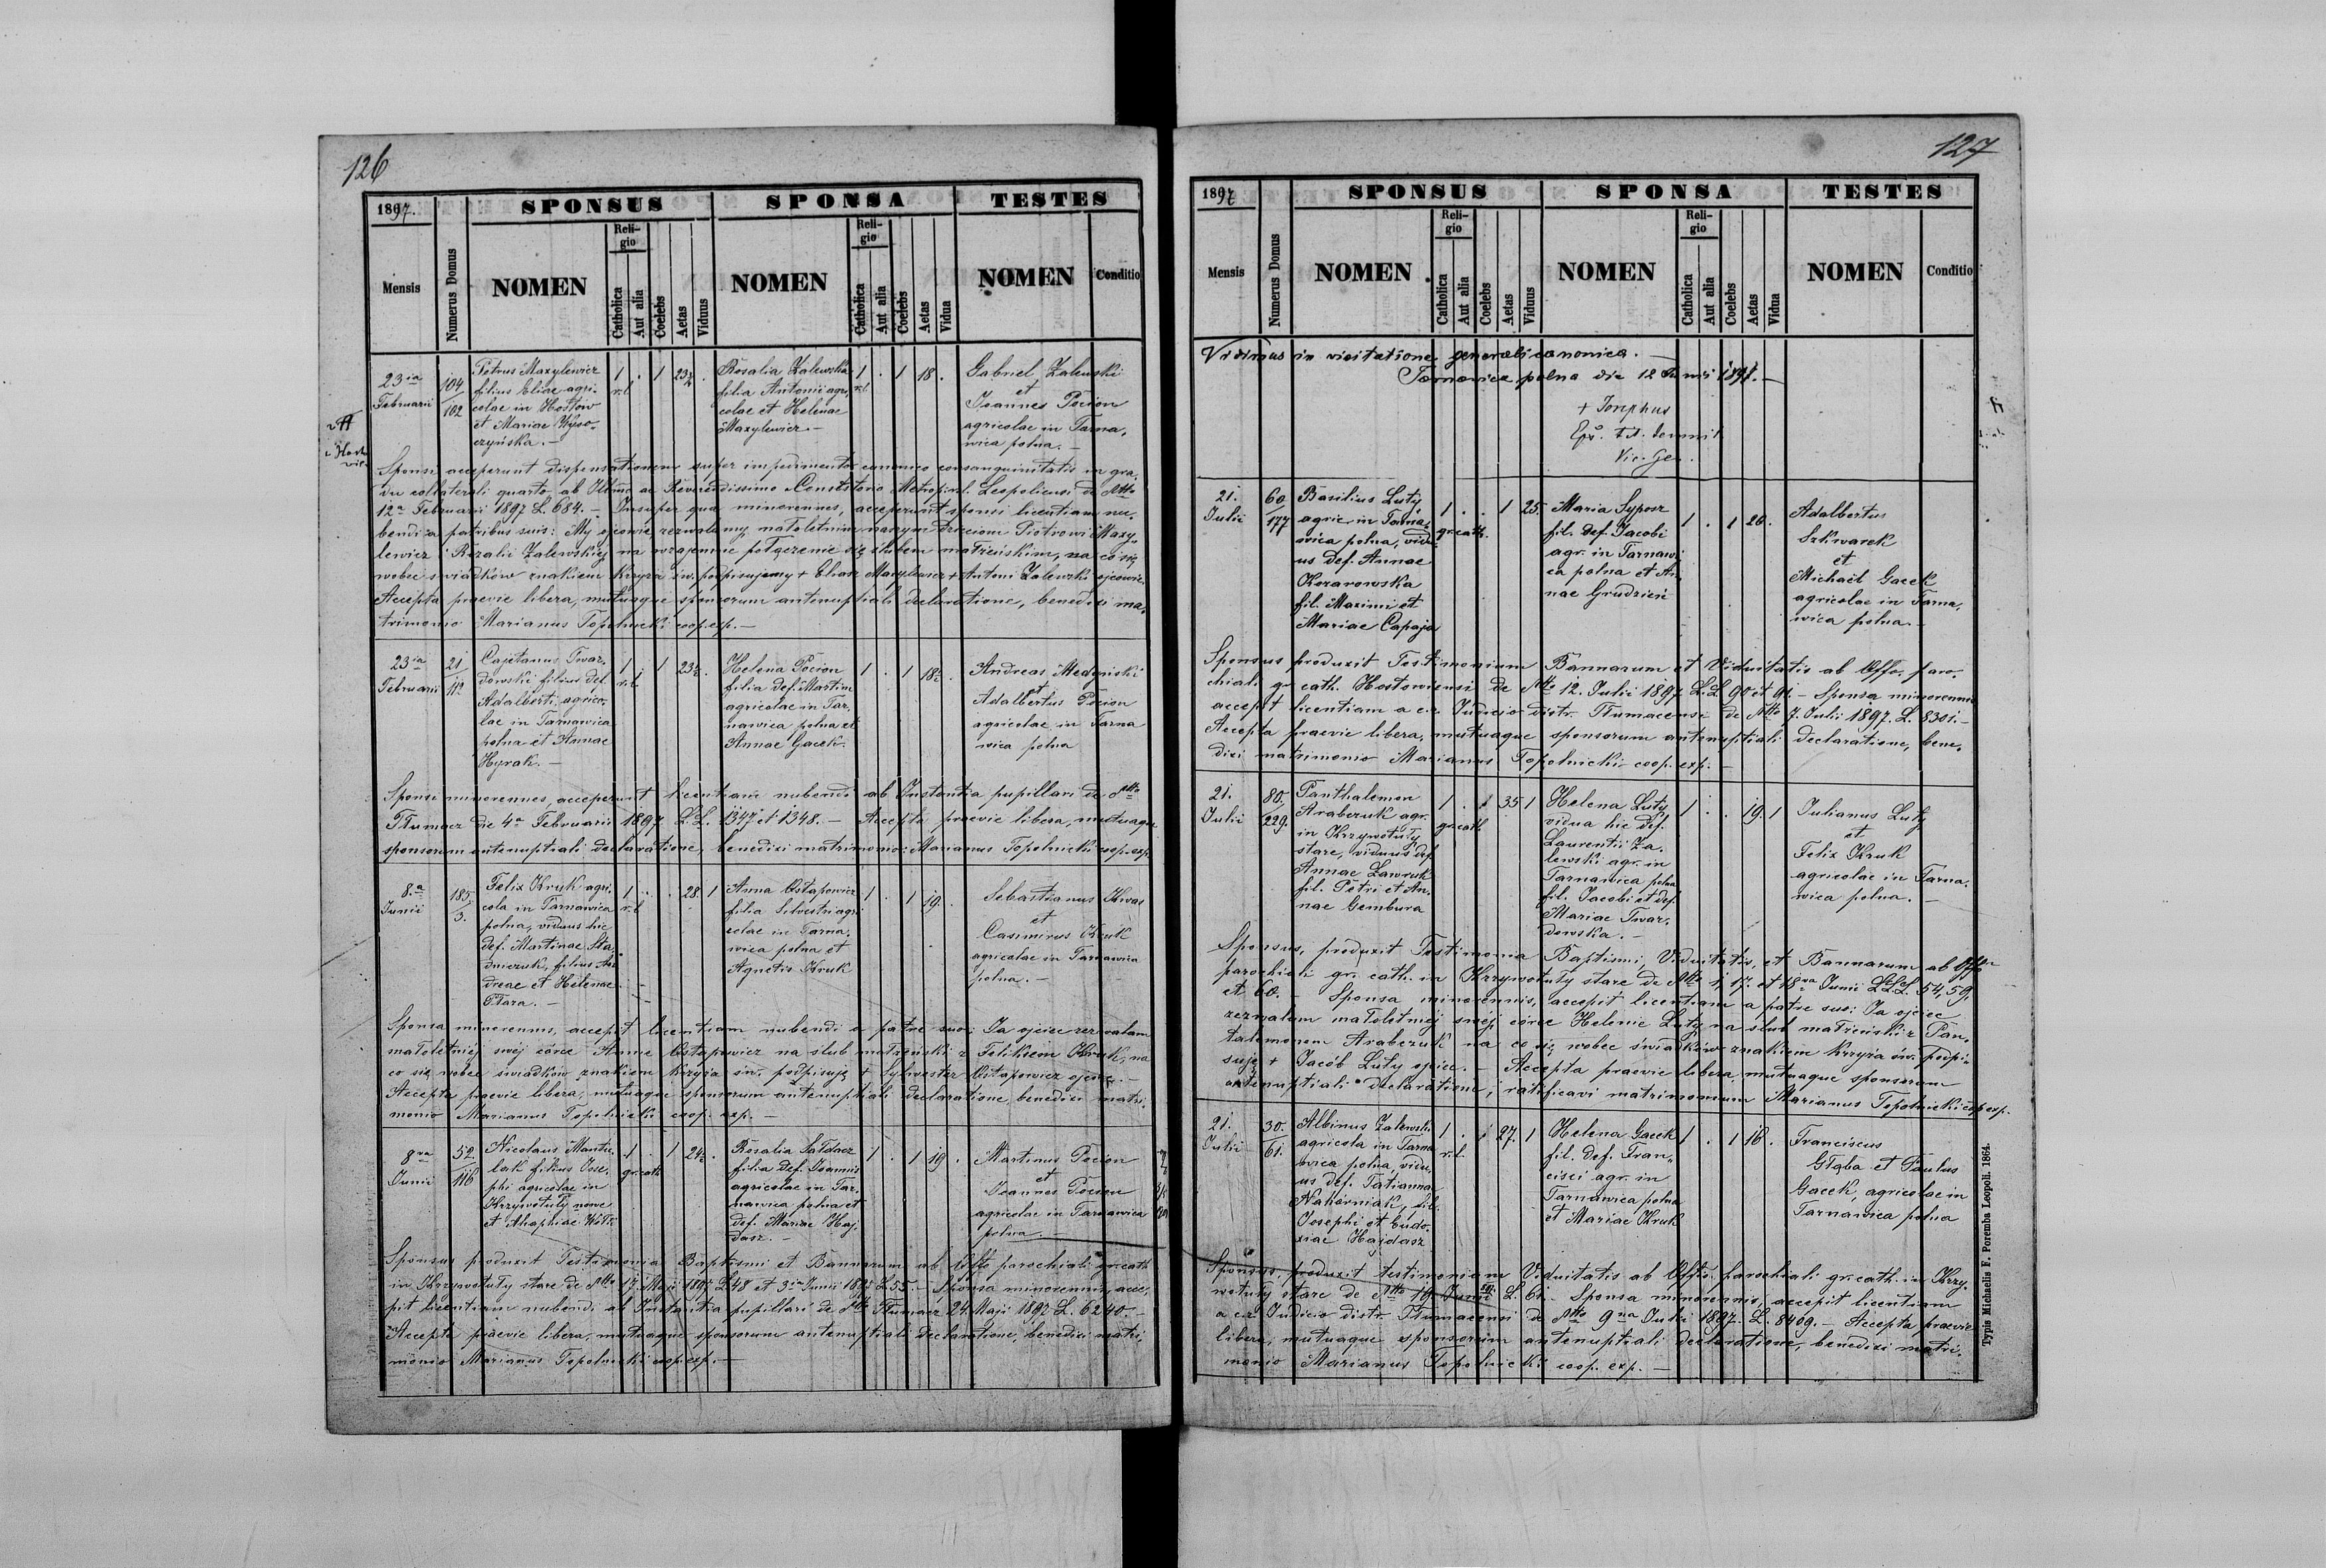 126
1897.
SPONSUS
SPONSA
TESTES
Mensis
Numerus Domus
NOMEN
Religio
Catholica
Aut alia
Coelebs
Aetas
Viduus
NOMEN
Religio
Catholica
Aut alia
Coelebs
Aetas
Vidua
NOMEN
Conditio
23ia
Februarii
104
102
Petrus Maxylewicz
filius Eliae agri-
colae in Hostów
et Mariae Wyso-
czyńska. —
1 r.l . 1 23½ .
Rosalia Zalewska
filia Antonii agri-
colae et Helenae
Maxylewicz. —
1 r.l . 1 18 .
Gabriel Zalewski
et
Joannes Pocion
agricolae in Tarna-
wica polna. —
Sponsi acceperunt dispensationem super impedimento canonico consanguinitatis in gra-
du collaterali quarto ab Illmo ac Reverendissimo Consistorio Metropol. Leopoliensi de dtto
12a Februarii 1897 L. 684. — Insuper qua minorennes, acceperunt sponsi licentiam nu-
bendi a patribus suis: My ojcowie zezwalamy małoletnim naszym dzieciom Piotrowi Maxy-
lewicz i Rozalii Zalewskiej na wzajemne połączenie się ślubem małżeńskim, na co się
wobec świadków znakiem Krzyża św. podpisujemy + Eliasz Maxylewicz + Antoni Zalewski ojcowie.
Accepta praevie libera, mutuaque sponsorum antenuptiali declaratione, benedixi ma-
trimonio Marianus Topolnicki coop. exp. —
23ia
Februarii
21
112
Cajetanus Twar-
dowski filius def.
Adalberti, agrico-
lae in Tarnawica
polna et Annae
Hyrak. —
1 r.l . 1 23½ .
Helena Pocion
filia def. Martini
agricolae in Tar-
nawica polna et
Annae Gacek.
1 . 1 18½ .
Andreas Medyński
et
Adalbertus Pocion
agricolae in Tarna
wica polna
Sponsi minorennes, acceperunt licentiam nubendi ab Instantia pupillari de dtto
Tłumacz die 4a Februarii 1897 L.L. 1347 et 1348. — Accepta praevie libera, mutuaque
sponsorum antenuptiali declaratione, benedixi matrimonio: Marianus Topolnicki coop. exp.
8.a
Junii
185.
3.
Felix Kruk agri-
cola in Tarnawica
polna, viduus hic
def. Martinae Sta-
dniczuk, filius An-
dreae et Helenae
Ptara. —
1 r.l . . 28. 1
Anna Ostapowicz
filia Silvestri agri-
colae in Tarna-
wica polna et
Agnetis Kruk
1 . 1 19 .
Sebastianus Kwas
et
Casimirus Kruk
agricolae in Tarnawica
polna. —
Sponsa minorennis, accepit licentiam nubendi a patre suo: Ja ojciec zezwalam
małoletniej swej córce Annie Ostapowicz na ślub małżeński z Feliksem Kruk, na
co się wobec świadków znakiem krzyża św. podpisuję + Sylwester Ostapowicz ojciec. —
Accepta praevie libera, mutuaque sponsorum antenuptiali declaratione, benedixi matri-
monio Marianus Topolnicki coop. exp. —
8va
Junii
52.
116
Nicolaus
filius Jose-
phi agricolae in
Krzywotuły nowe
et
1 gr.cath . 1 24½ .
Rosalia Sałdacz
filia def. Joannis
agricolae in Tar-
nawica polna et
def. Mariae Haj-
dasz. —
1 . 1 19 .
Martinus Pocion
et
Joannes Pocion
agricolae in Tarnawica
polna. —
Sponsus produxit Testimonia Baptismi et Bannorum ab Offo parochiali gr. cath.
in Krzywotuły stare de dtto 17 Maji 1897 L. 48 et 3ia Junii 1897 L. 55. — Sponsa minorennis, acce-
pit licentiam nubendi ab Instantia pupillari de dtto Tłumacz 24 Maji 1897 L. 6240. —
Accepta praevie libera, mutuaque sponsorum antenuptiali declaratione, benedixi matri-
monio Marianus Topolnicki coop. exp. —
127
1897
SPONSUS
SPONSA
TESTES
Mensis
Numerus Domus
NOMEN
Religio
Catholica
Aut alia
Coelebs
Aetas
Viduus
NOMEN
Religio
Catholica
Aut alia
Coelebs
Aetas
Vidua
NOMEN
Conditio
Vidimus in visitatione generali canonica. —
Tarnawica polna die 12 Junii 1897. —
+ Josephus
Eps. tit.
Vic. Gen.
21.
Julii
60
177
Basilius Luty
agric. in Tarna-
wica polna, vidu-
us def. Annae
Kozanowska
fil. Maximi et
Mariae Capaja
1 gr.cath. . . 1 25.
Maria Syposz
fil. def. Jacobi
agr. in Tarnawi-
ca polna et An-
nae Grudzień
1 . 1 20.
Adalbertus
Szkwarek
et
Michaël Gacek
agricolae in Tarna-
wica polna. —
Sponsus produxit Testimonium Bannorum et Viduitatis ab Offo. paro-
chiali gr. cath. Hostowiensi de dtto 12. Julii 1897 L.L. 90 et 91. — Sponsa minorennis
accepit licentiam a c.r. Judicio distr. Tłumacensi de dtto 7. Julii 1897. L. 8301. —
Accepta praevie libera, mutuaque sponsorum antenuptiali declaratione, bene-
dixi matrimonio Marianus Topolnicki coop. exp. —
21.
Julii
80.
229.
Panthalemon
Araberuk agr.
in Krzywotuły
stare, viduus def.
Annae Ławruk
fil. Petri et An-
nae Gembura
1 gr.cath . 1 35 1
Helena Luty
vidua hic def.
Laurentii Za-
lewski agr. in
Tarnawica polna
fil. Jacobi et def.
Mariae Twar-
dowska. —
1 . . 19. 1
Julianus Luty
et
Felix Kruk
agricolae in Tarna-
wica polna. —
Sponsus, produxit Testimonia Baptismi, Viduitatis, et Bannorum ab Offo
parochiali gr. cath. in Krzywotuły stare de dtto 1, 17. et 18va Junii L.L.L. 54, 59,
et 60. — Sponsa minorennis, accepit licentiam a patre suo: Ja ojciec
zezwalam małoletniej swej córce Helenie Luty na ślub małżeński z Pan-
talemonem Araberuk na co się wobec świadków znakiem krzyża św. podpi-
suję + Jacób Luty ojciec. — Accepta praevie libera, mutuaque sponsorum
antenuptiali declaratione, ratificavi matrimonium Marianus Topolnicki coop. exp.
21.
Julii
30.
61.
Albinus Zalewski
agricola in Tarna-
wica polna, vidu-
us def. Tatianna
Nahorniak, fil.
Josephi et Eudo-
xiae Hajdasz
1 r.l. . 1 27. 1
Helena Gacek
fil. def. Fran-
cisci agr. in
Tarnawica polna
et Mariae Kruk
1 . 1 18 .
Franciscus
Głąba et Paulus
Gacek, agricolae in
Tarnawica polna
Sponsus, produxit testimonium Viduitatis ab Offo. parochiali gr. cath. in Krzy-
wotuły stare de dtto 19. Junii L. 61. — Sponsa minorennis, accepit licentiam
a c.r. Judicio distr. Tłumacensi de dtto 9na Julii 1897. L. 8409. — Accepta praevie
libera, mutuaque sponsorum antenuptiali declaratione, benedixi matri-
monio Marianus Topolnicki coop. exp. —
Typis Michaelis F. Poremba Leopoli. 1864.